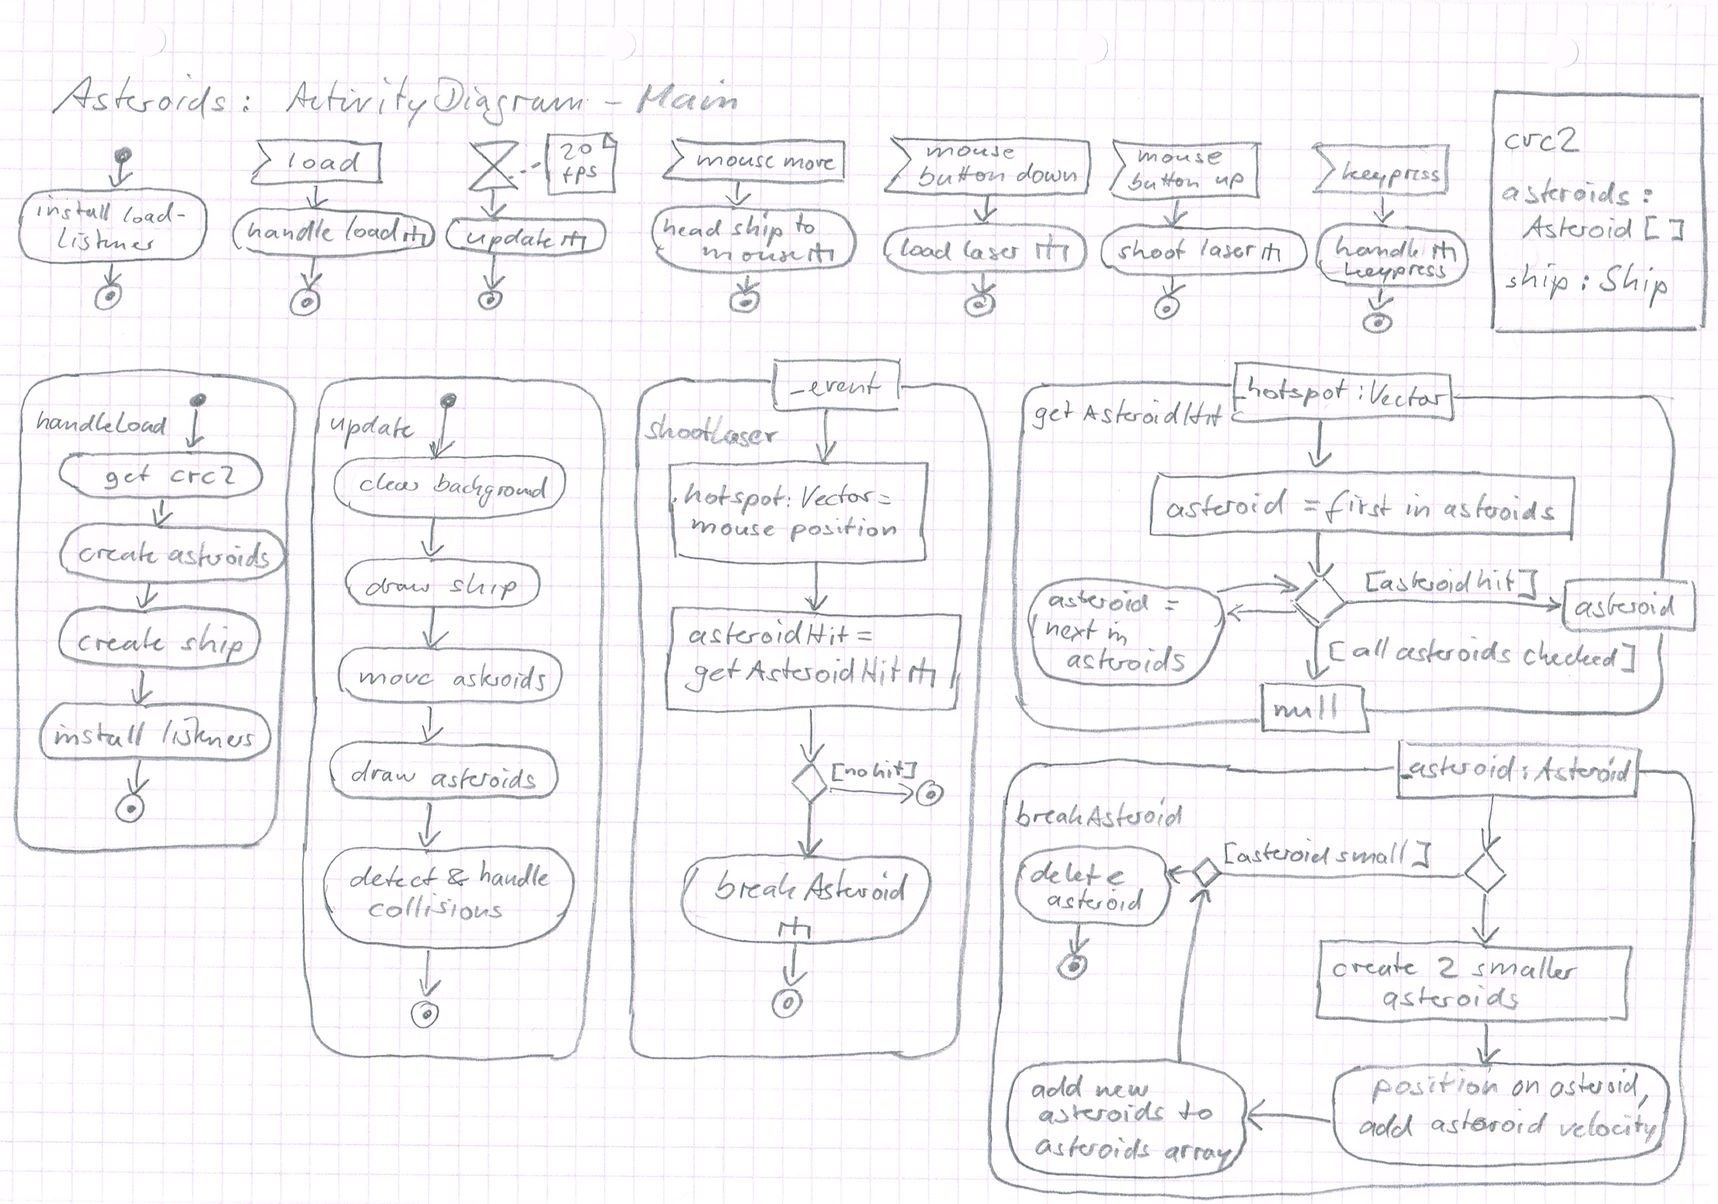 Asteroids: Activity Diagram - Main
install load-
Listner
load
handle load
20
fps
update
mouse move
head ship to
mouse
mouse
button down
load laser
mouse
button up
shoot laser
keypress
handle
keypress
crc2
asteroids:
Asteroid[]
ship: Ship
handleLoad
get crc2
create asteroids
create ship
install listners
update
clear background
draw ship
move asteroids
draw asteroids
detect & handle
collisions
_event
shootLaser
hotspot: Vector =
mouse position
asteroidHit =
getAsteroidHit
[no hit]
breakAsteroid
_hotspot: Vector
getAsteroidHit
asteroid = first in asteroids
[asteroid hit]
asteroid
asteroid =
next in
asteroids
[all asteroids checked]
null
_asteroid: Asteroid
breakAsteroid
[asteroid small]
delete
asteroid
create 2 smaller
asteroids
position on asteroid,
add asteroid velocity
add new
asteroids to
asteroids array